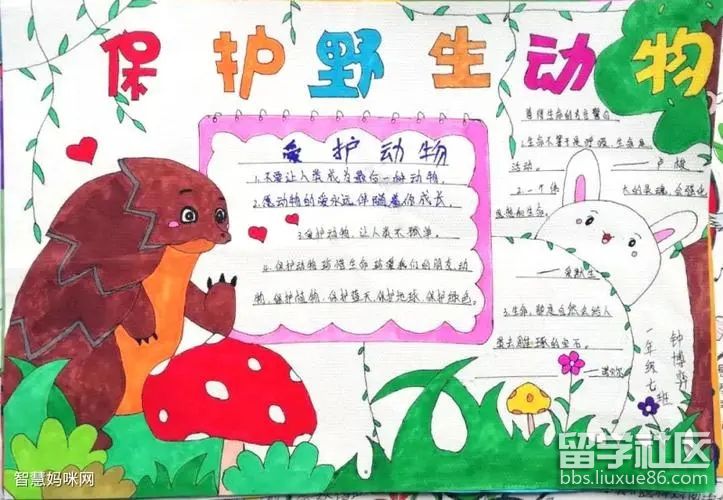 保护野生动物
爱护动物
1.不要让人类成为最后一种动物。
2.愿动物的爱永远伴随着你成长。
3.爱护动物,让人类不孤单。
4.保护动物珍惜生命珍爱我们的朋友动
物,保护植物,保护蓝天,保护地球,保护绿色。
善待生命的名言警句
1.生命不等于是呼吸,生命是
活动。——卢梭
2.一个伟大的灵魂,会强化
思想和生命。
——爱默生
3.生命,那是自然会给人
类去雕琢的宝石。
——诺贝尔
一年级七班
钟博
智慧妈咪网
留学社区
bbs.liuxue86.com